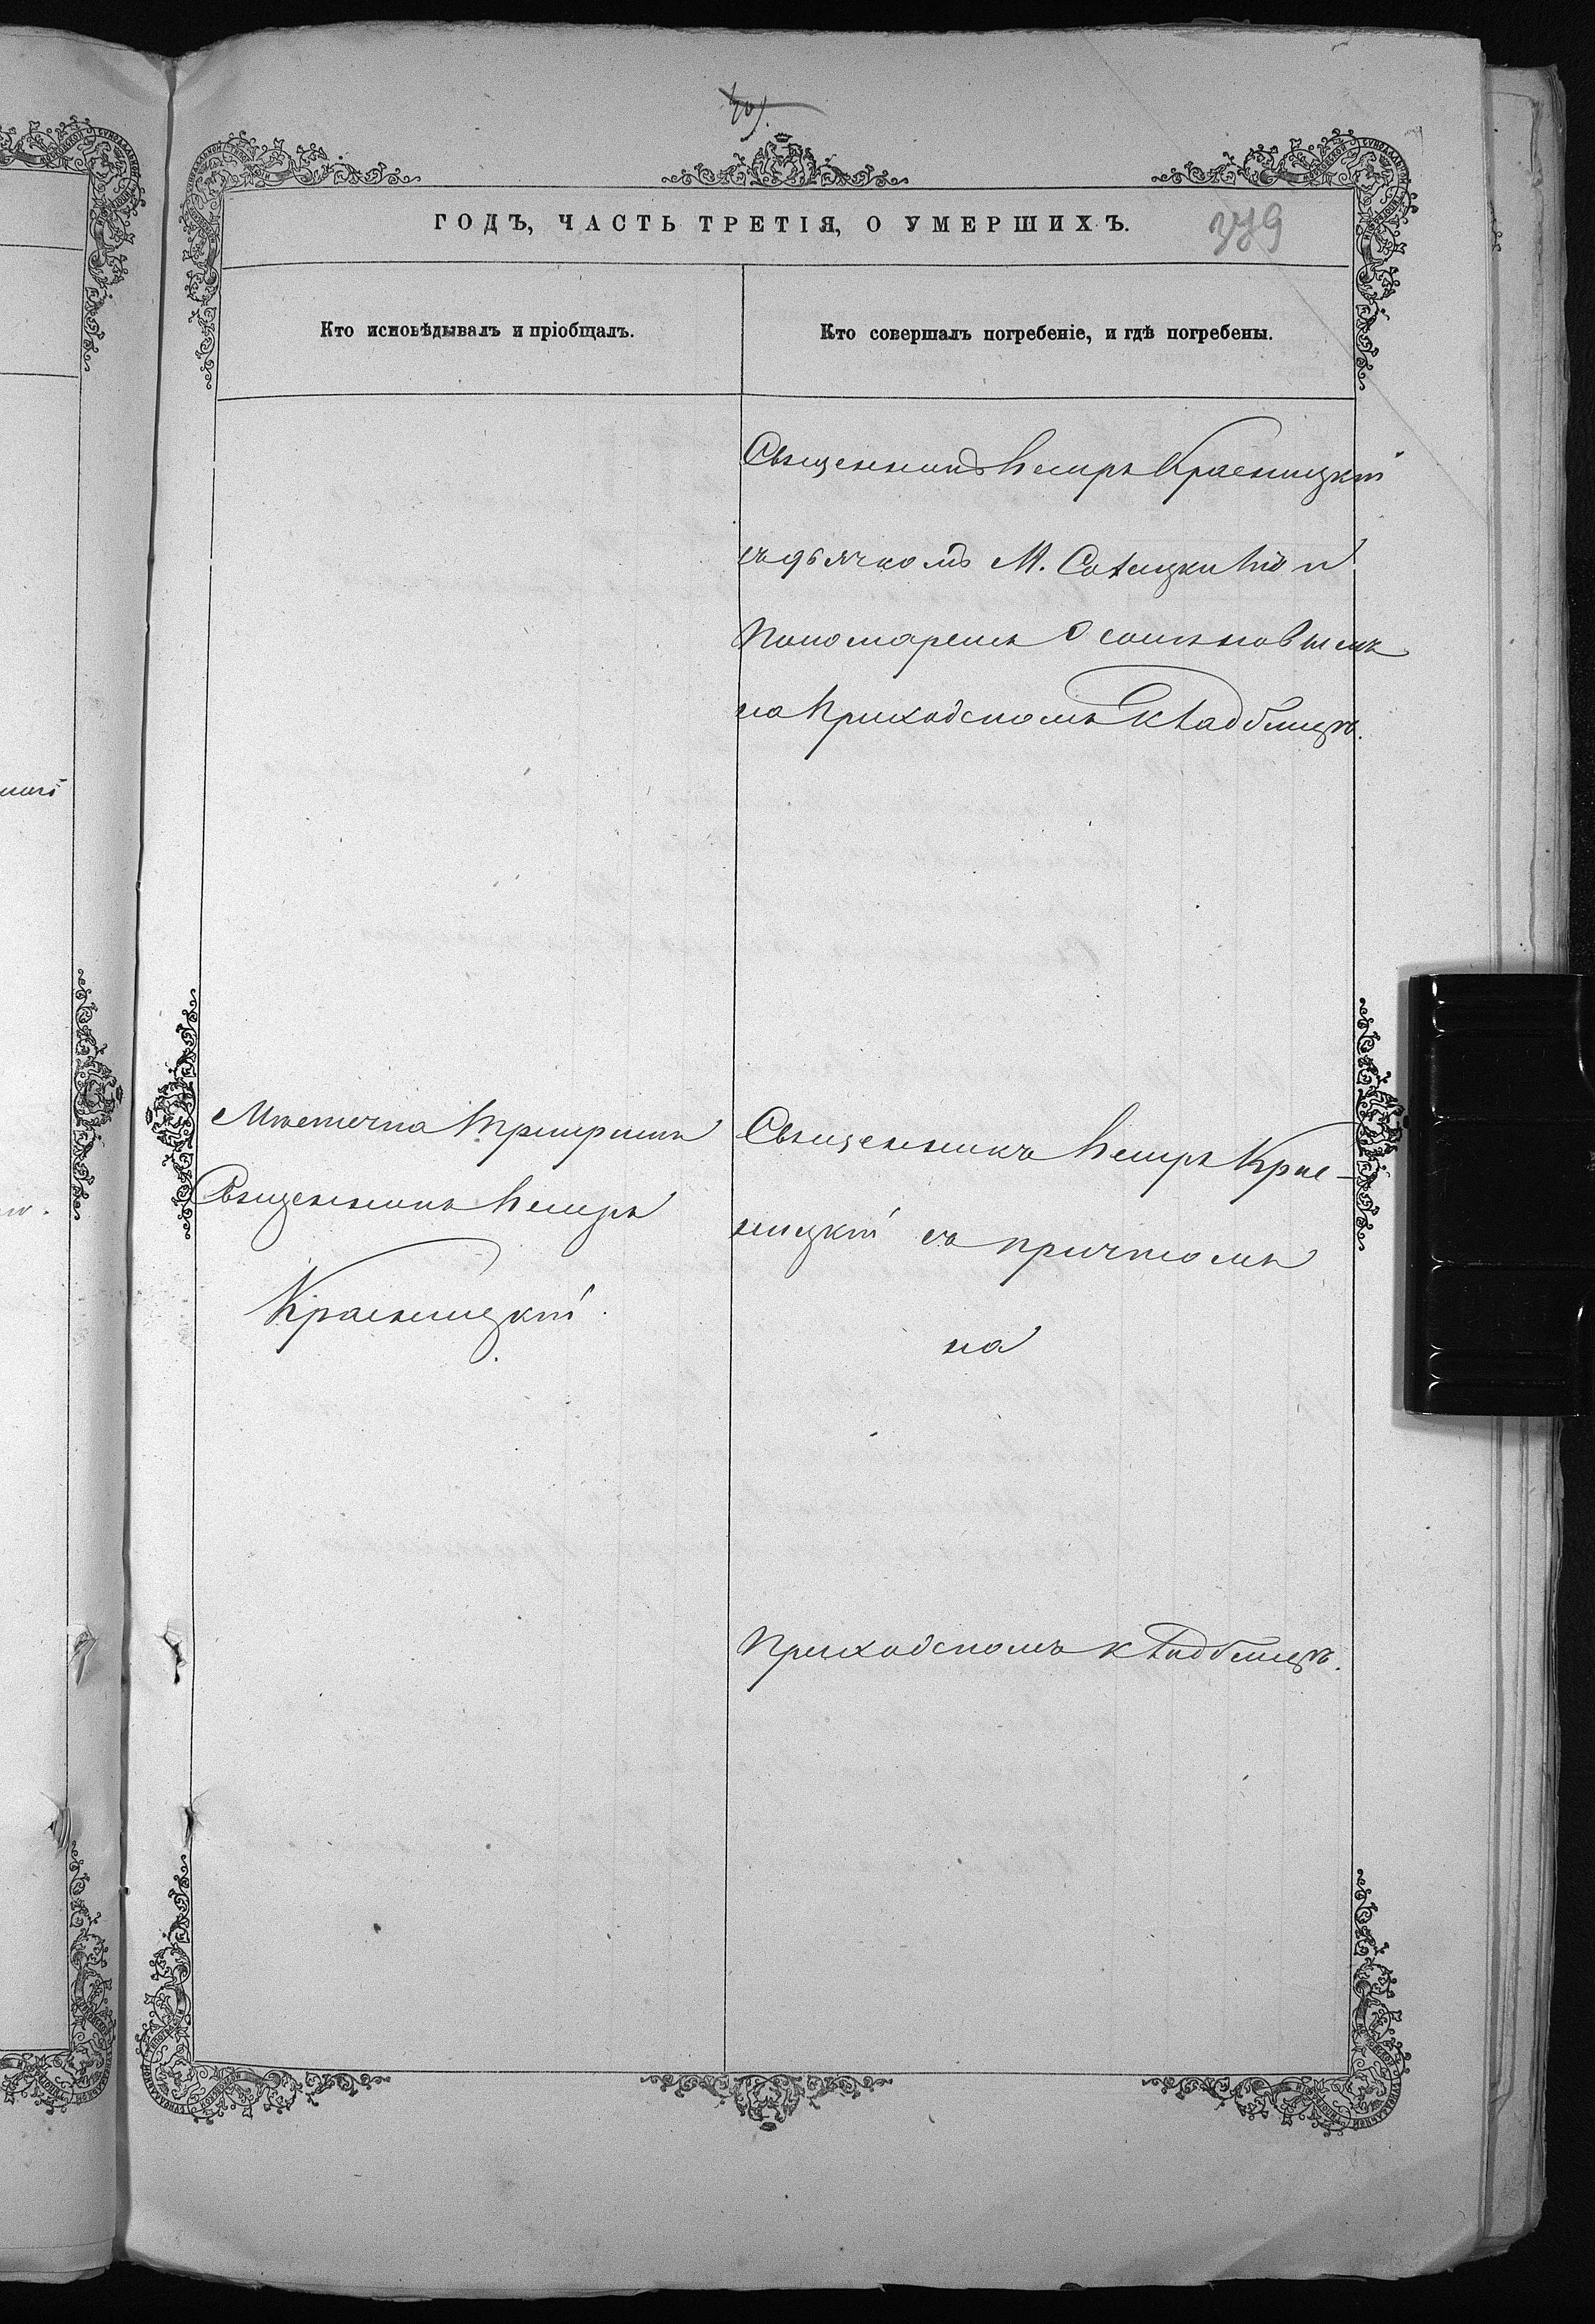 ГОДЪ, ЧАСТЬ ТРЕТІЯ, О УМЕРШИХЪ.
379
Кто исповѣдывалъ и пріобщалъ.
Кто совершалъ погребеніе, и гдѣ погребены.
Священникъ Петръ Красницкій
съ дьячкомъ М. и
Пономаремъ
на Приходскомъ Кладбищѣ.
Мѣстечка
Священникъ Петръ
Красницкій.
Священникъ Петръ Крас-
ницкій съ причтомъ
на
Приходскомъ кладбищѣ.